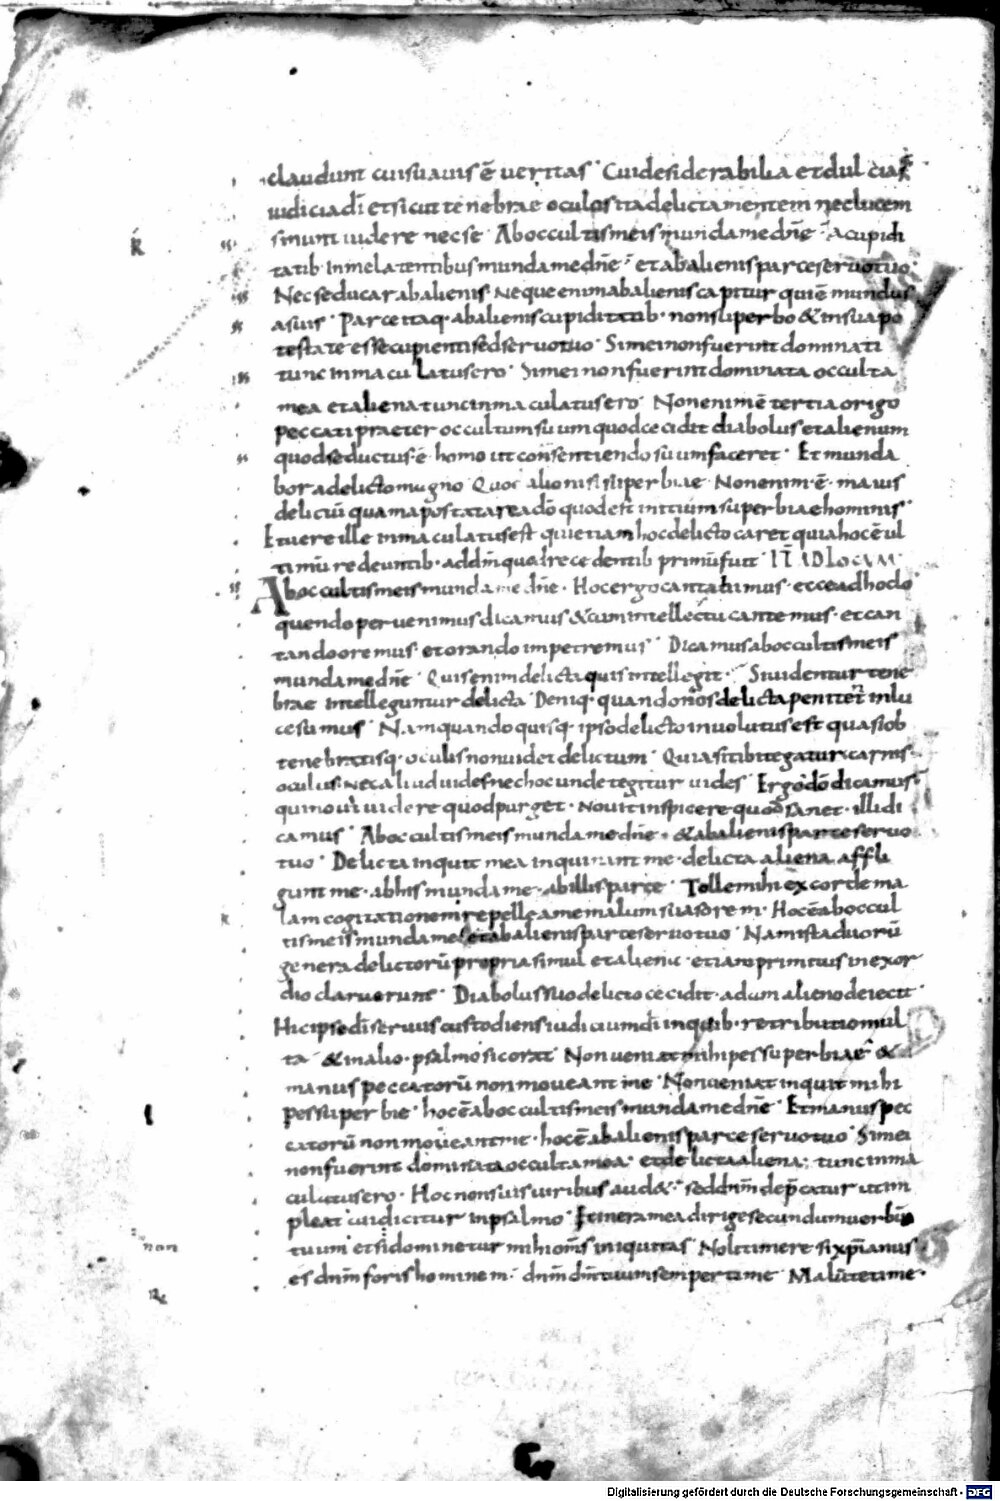 claudunt cui suavis ē veritas · Cui desiderabilia et dulcia s̄
iudicia dī et sicut tenebrae oculos ita delicta mentem nec lucem
sinunt videre nec se · Ab occultis meis munda me dn̄e · A cupidi
tatib· in me latentibus munda me dn̄e · et ab alienis parce servo tuo
Nec seducar ab alienis · Neque enim ab alienis capitur qui ē mundus
a suis · Parce itaq· ab alienis cupiditatib· non superbo & in sua po
testate esse cupienti sed servo tuo · Si mei non fuerint dominati
tunc inmaculatus ero · Si mei non fuerint dominata occulta
mea et aliena tunc inmaculatus ero · Non enim ē tertia origo
peccati praeter occultum suum quod cecidit diabolus et alienum
quod seductus · ē · homo ut consentiendo suum faceret · Et munda
bor a delicto magno Quo alio nisi superbiae · Non enim · ē · maius
delictū quam apostatare a dō quod est initium superbiae hominis ·
Et vere ille inmaculatus est qui etiam hoc delicto caret quia hoc ē ul
timū redeuntib· ad dm̄ quod recedentib· primū fuit · IT̄ AD LOCUM
Ab occultis meis munda me dn̄e · Hoc ergo cantabimus · ecce ad hoc lo
quendo pervenimus dicamus & cum intellectu cantemus · et can
tando oremus · et orando impetremus · Dicamus ab occultis meis
munda me dn̄e · Quis enim delicta quis intellegit · Si videntur tene
brae intelleguntur delicta · Deniq· quando nos delicta penitet in lu
ce sumus · Nam quando quisq· ipso delicto involutus est quasi ob
tenebratisq· oculis non videt delictum · Quia si tibi tegatur carnis
oculus nec aliud vides nec hoc unde tegitur vides · Ergo dō dicamus
qui novit videre quod purget · Novit inspicere quod sanet · illi di
camus · Ab occultis meis munda me dn̄e · & ab alienis parce servo
tuo · Delicta inquit mea inquinant me · delicta aliena affli
gunt me · ab his munda me · ab illis parce · Tolle mihi ex corde ma
lam cogitationem repelle a me malum suasorem · Hoc ē ab occul
tis meis munda me et ab alienis parce servo tuo · Nam ista duorū
genera delictorū propria simul et aliena · etiam primitus in exor
dio claruerunt · Diabolus suo delicto cecidit · adam alieno deiecit ·
Hic ipse dī servus custodiens iudicium dī in quib· retributio mul
ta · & in alio · psalmo sic orat · Non veniat mihi pes superbiae · &
manus peccatorū non moveant me · Non veniat inquit mihi
pes superbie · hoc ē ab occultis meis munda me dn̄e · Et manus pec
catorū non moveant me · hoc ē ab alienis parce servo tuo · Si mei
non fuerint dominata occulta mea · et delicta aliena · tunc inma
culatus ero · Hoc non suis viribus aud& · sed dnm̄ dep̄catur ut im
pleat cui dicitur in psalmo · Itinera mea dirige secundum verbū
tuum et si dominetur mihi om̄s iniquitas · Noli timere si xp̄ianus
es dnm̄ foris hominem · dnm̄ dm̄ tuum semper time · Malū te time ·
non
Digitalisierung gefördert durch die Deutsche Forschungsgemeinschaft - DFG